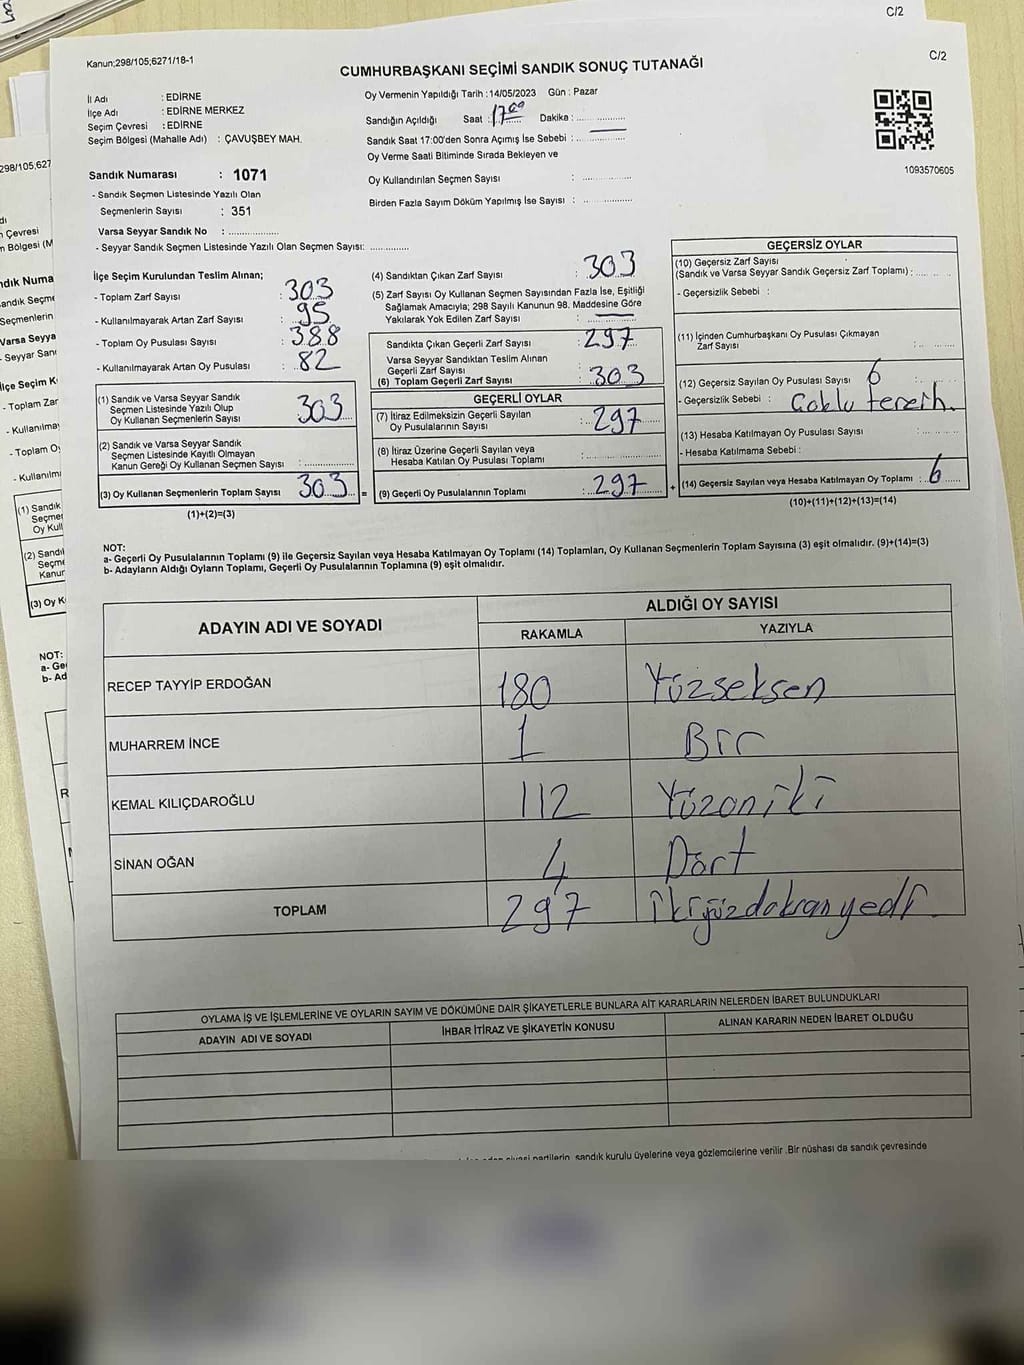 C/2
C/2
Kanun;298/105;6271/18-1
CUMHURBAŞKANI SEÇİMİ SANDIK SONUÇ TUTANAĞI
İl Adı : EDİRNE
İlçe Adı : EDİRNE MERKEZ
Seçim Çevresi : EDİRNE
Seçim Bölgesi (Mahalle Adı) : ÇAVUŞBEY MAH.
Oy Vermenin Yapıldığı Tarih :14/05/2023 Gün : Pazar
Sandığın Açıldığı Saat : 17:00 Dakika :
Sandık Saat 17:00'den Sonra Açımış İse Sebebi :
Oy Verme Saati Bitiminde Sırada Bekleyen ve
Oy Kullandırılan Seçmen Sayısı :
Birden Fazla Sayım Döküm Yapılmış İse Sayısı :
1093570605
Sandık Numarası : 1071
- Sandık Seçmen Listesinde Yazılı Olan
Seçmenlerin Sayısı : 351
Varsa Seyyar Sandık No :
- Seyyar Sandık Seçmen Listesinde Yazılı Olan Seçmen Sayısı:
İlçe Seçim Kurulundan Teslim Alınan;
- Toplam Zarf Sayısı : 303
- Kullanılmayarak Artan Zarf Sayısı : 95
- Toplam Oy Pusulası Sayısı : 388
- Kullanılmayarak Artan Oy Pusulası : 82
(1) Sandık ve Varsa Seyyar Sandık
Seçmen Listesinde Yazılı Olup
Oy Kullanan Seçmenlerin Sayısı : 303
(2) Sandık ve Varsa Seyyar Sandık
Seçmen Listesinde Kayıtlı Olmayan
Kanun Gereği Oy Kullanan Seçmen Sayısı :
(3) Oy Kullanan Seçmenlerin Toplam Sayısı 303 =
(1)+(2)=(3)
(4) Sandıktan Çıkan Zarf Sayısı : 303
(5) Zarf Sayısı Oy Kullanan Seçmen Sayısından Fazla İse, Eşitliği
Sağlamak Amacıyla; 298 Sayılı Kanunun 98. Maddesine Göre
Yakılarak Yok Edilen Zarf Sayısı :
Sandıkta Çıkan Geçerli Zarf Sayısı : 297
Varsa Seyyar Sandıktan Teslim Alınan
Geçerli Zarf Sayısı :
(6) Toplam Geçerli Zarf Sayısı : 303
GEÇERLİ OYLAR
(7) İtiraz Edilmeksizin Geçerli Sayılan
Oy Pusulalarının Sayısı : 297
(8) İtiraz Üzerine Geçerli Sayılan veya
Hesaba Katılan Oy Pusulası Toplamı :
(9) Geçerli Oy Pusulalarının Toplamı : 297 +
GEÇERSİZ OYLAR
(10) Geçersiz Zarf Sayısı
(Sandık ve Varsa Seyyar Sandık Geçersiz Zarf Toplamı) :
- Geçersizlik Sebebi :
(11) İçinden Cumhurbaşkanı Oy Pusulası Çıkmayan
Zarf Sayısı :
(12) Geçersiz Sayılan Oy Pusulası Sayısı : 6
- Geçersizlik Sebebi : Çoklu tercih.
(13) Hesaba Katılmayan Oy Pusulası Sayısı :
- Hesaba Katılmama Sebebi :
(14) Geçersiz Sayılan veya Hesaba Katılmayan Oy Toplamı : 6
(10)+(11)+(12)+(13)=(14)
NOT:
a- Geçerli Oy Pusulalarının Toplamı (9) ile Geçersiz Sayılan veya Hesaba Katılmayan Oy Toplamı (14) Toplamları, Oy Kullanan Seçmenlerin Toplam Sayısına (3) eşit olmalıdır. (9)+(14)=(3)
b- Adayların Aldığı Oyların Toplamı, Geçerli Oy Pusulalarının Toplamına (9) eşit olmalıdır.
ADAYIN ADI VE SOYADI ALDIĞI OY SAYISI
RAKAMLA YAZIYLA
RECEP TAYYİP ERDOĞAN 180 Yüzseksen
MUHARREM İNCE 1 Bir
KEMAL KILIÇDAROĞLU 112 Yüzoniki
SİNAN OĞAN 4 Dört
TOPLAM 297 ikiyüzdoksanyedi
OYLAMA İŞ VE İŞLEMLERİNE VE OYLARIN SAYIM VE DÖKÜMÜNE DAİR ŞİKAYETLERLE BUNLARA AİT KARARLARIN NELERDEN İBARET BULUNDUKLARI
ADAYIN ADI VE SOYADI İHBAR İTİRAZ VE ŞİKAYETİN KONUSU ALINAN KARARIN NEDEN İBARET OLDUĞU
partilerin, sandık kurulu üyelerine veya gözlemcilerine verilir .Bir nüshası da sandık çevresinde